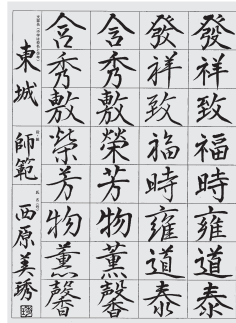 發祥致福時雍道泰
發祥致福時雍道泰
含秀敷榮芳物薫馨
含秀敷榮芳物薫馨
東城 師範 西原美琇